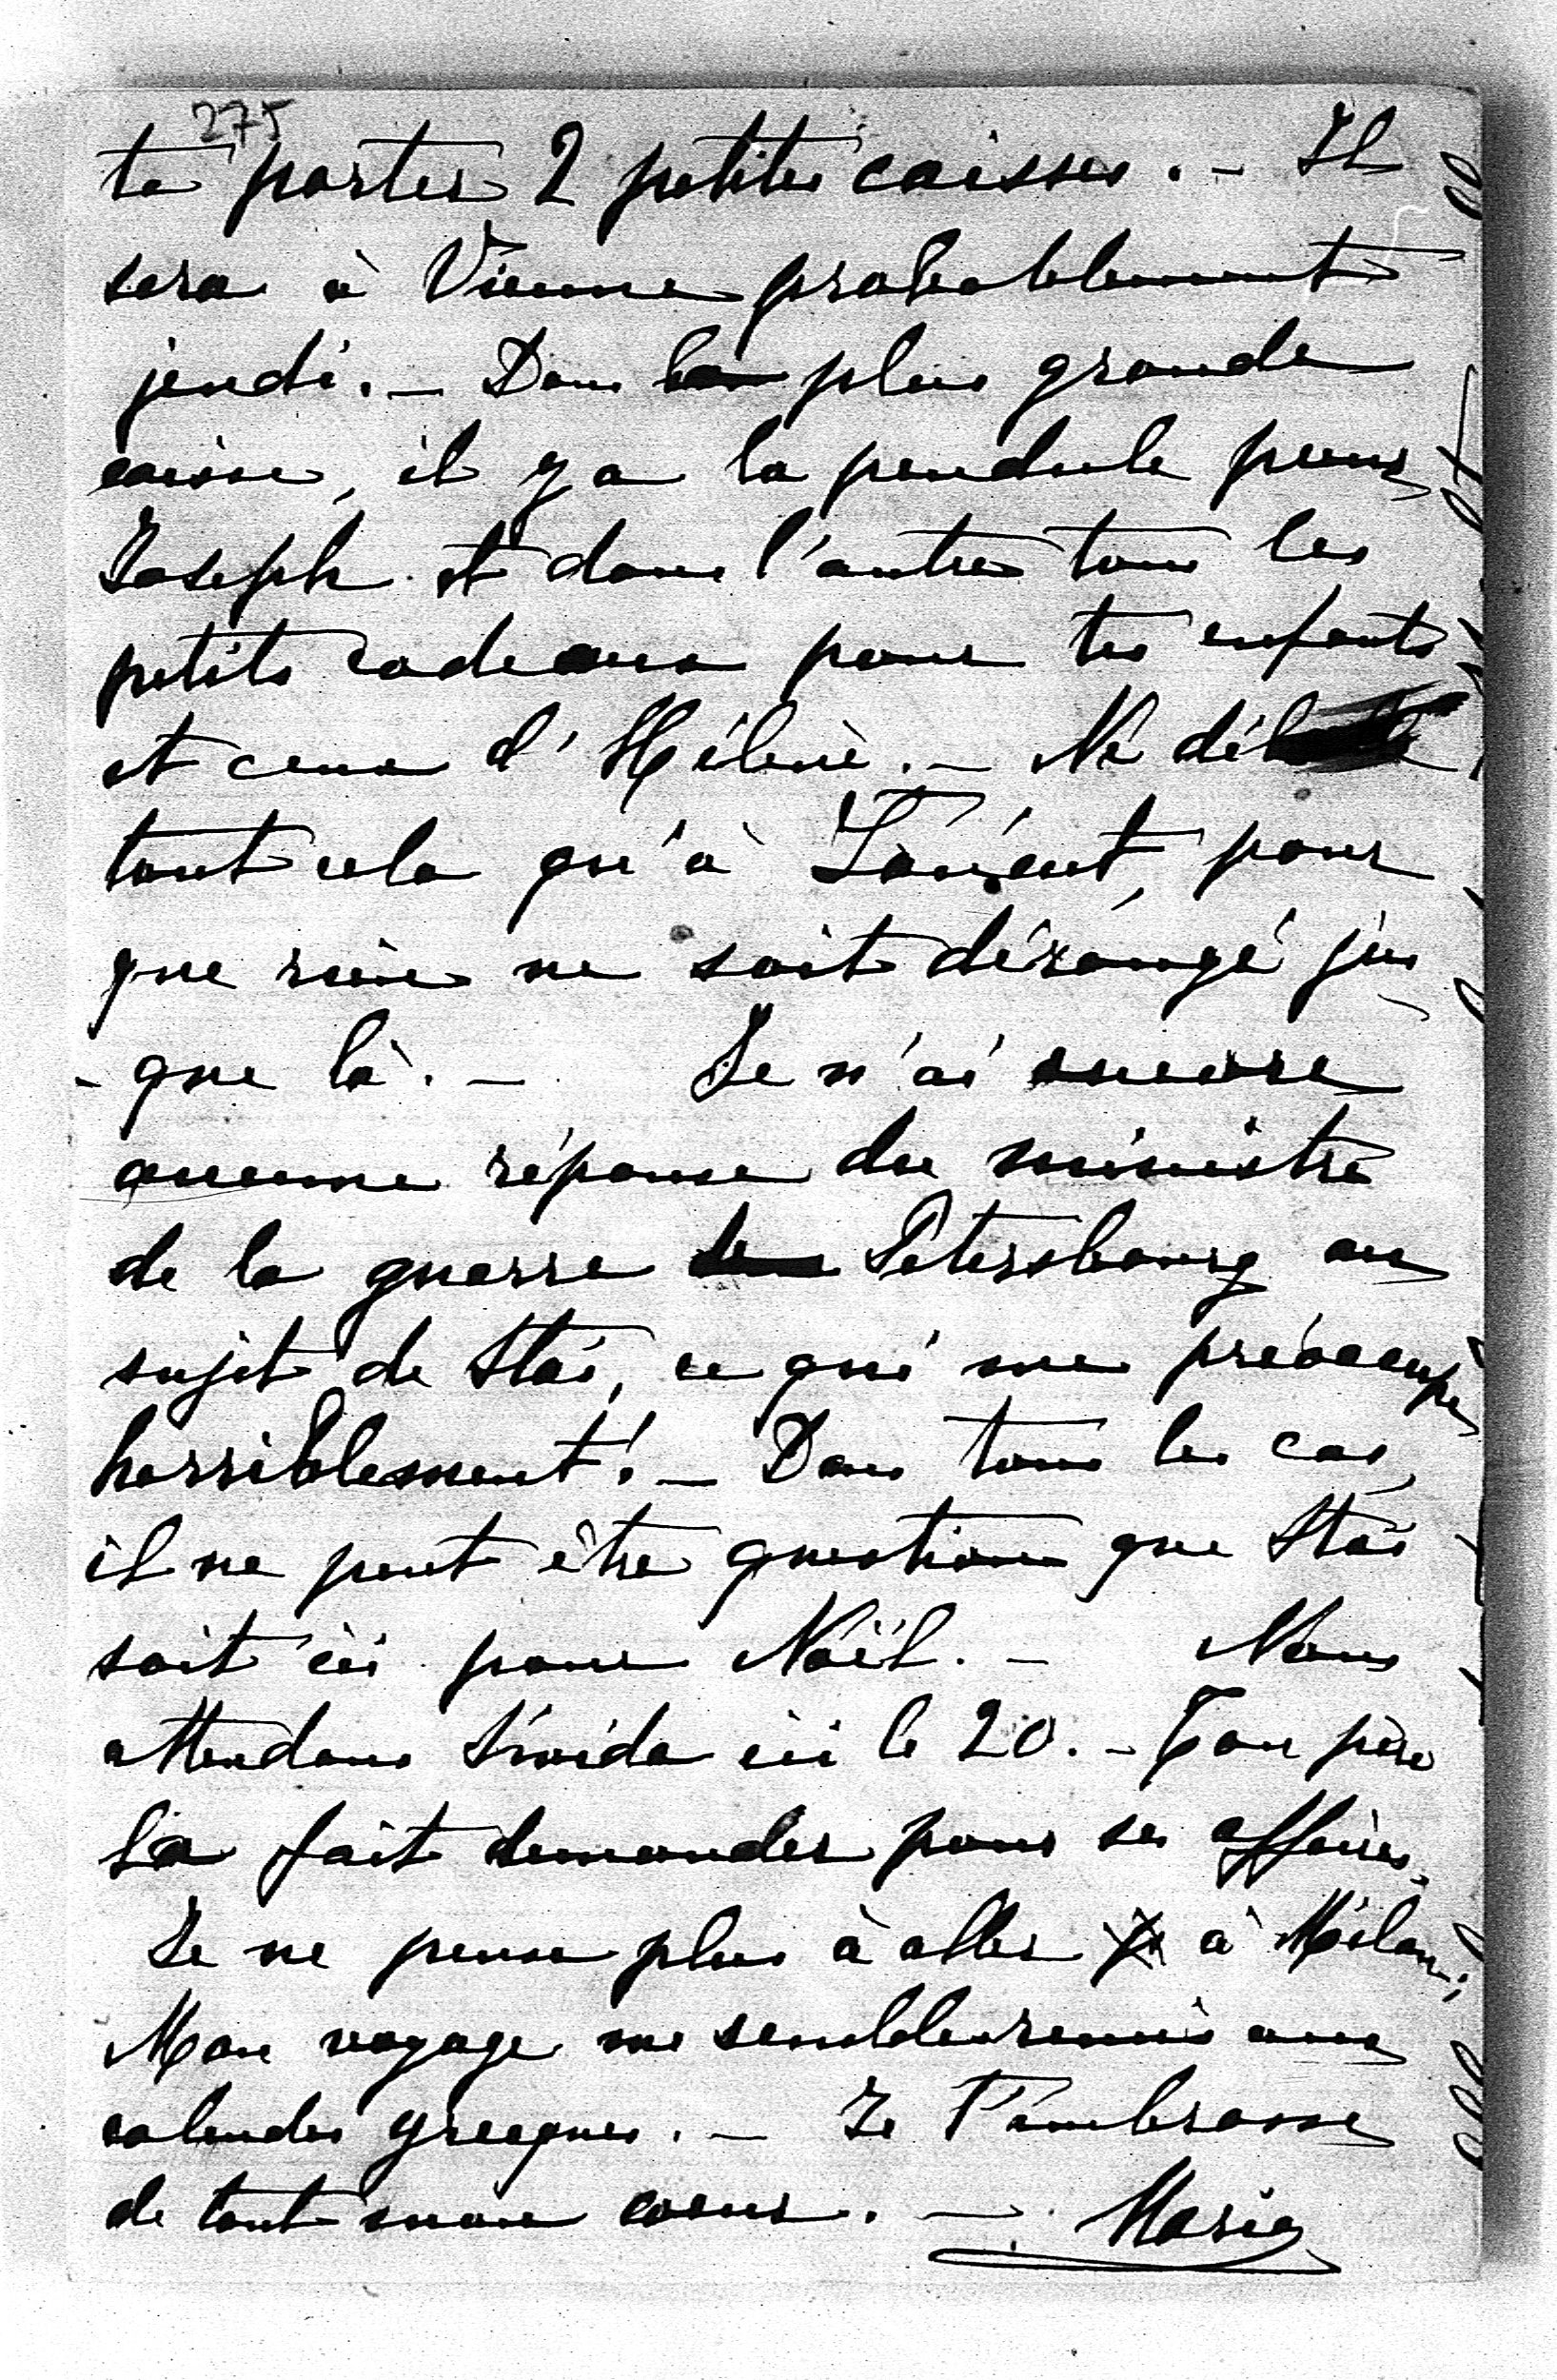 275
te porter 2 petites caisses. - Il
sera à Vienne probablement
jeudi. - Dans la plus grande
caisse, il y a la pendule pour
Joseph et dans l'autre tous les
petits cadeaux pour tes enfants
et ceux d'Hélène. - Ne
tout cela qu'à pour
que rien ne soit dérangé jus
- que là. - Je n'ai encore
aucune réponse du ministre
de la guerre de Petersbourg au
sujet de Staś, ce qui me préoccupe
horriblement! - Dans tous les cas,
il ne peut être question que Staś
soit ici pour Noël. - Nous
attendons ici le 20. - Ton père
l'a fait demander pour ses affaires.
Je ne pense plus à aller à Milan;
Mon voyage me semble remis aux
calendes grecques. - Je t'embrasse
de tout mon coeur. - Marie